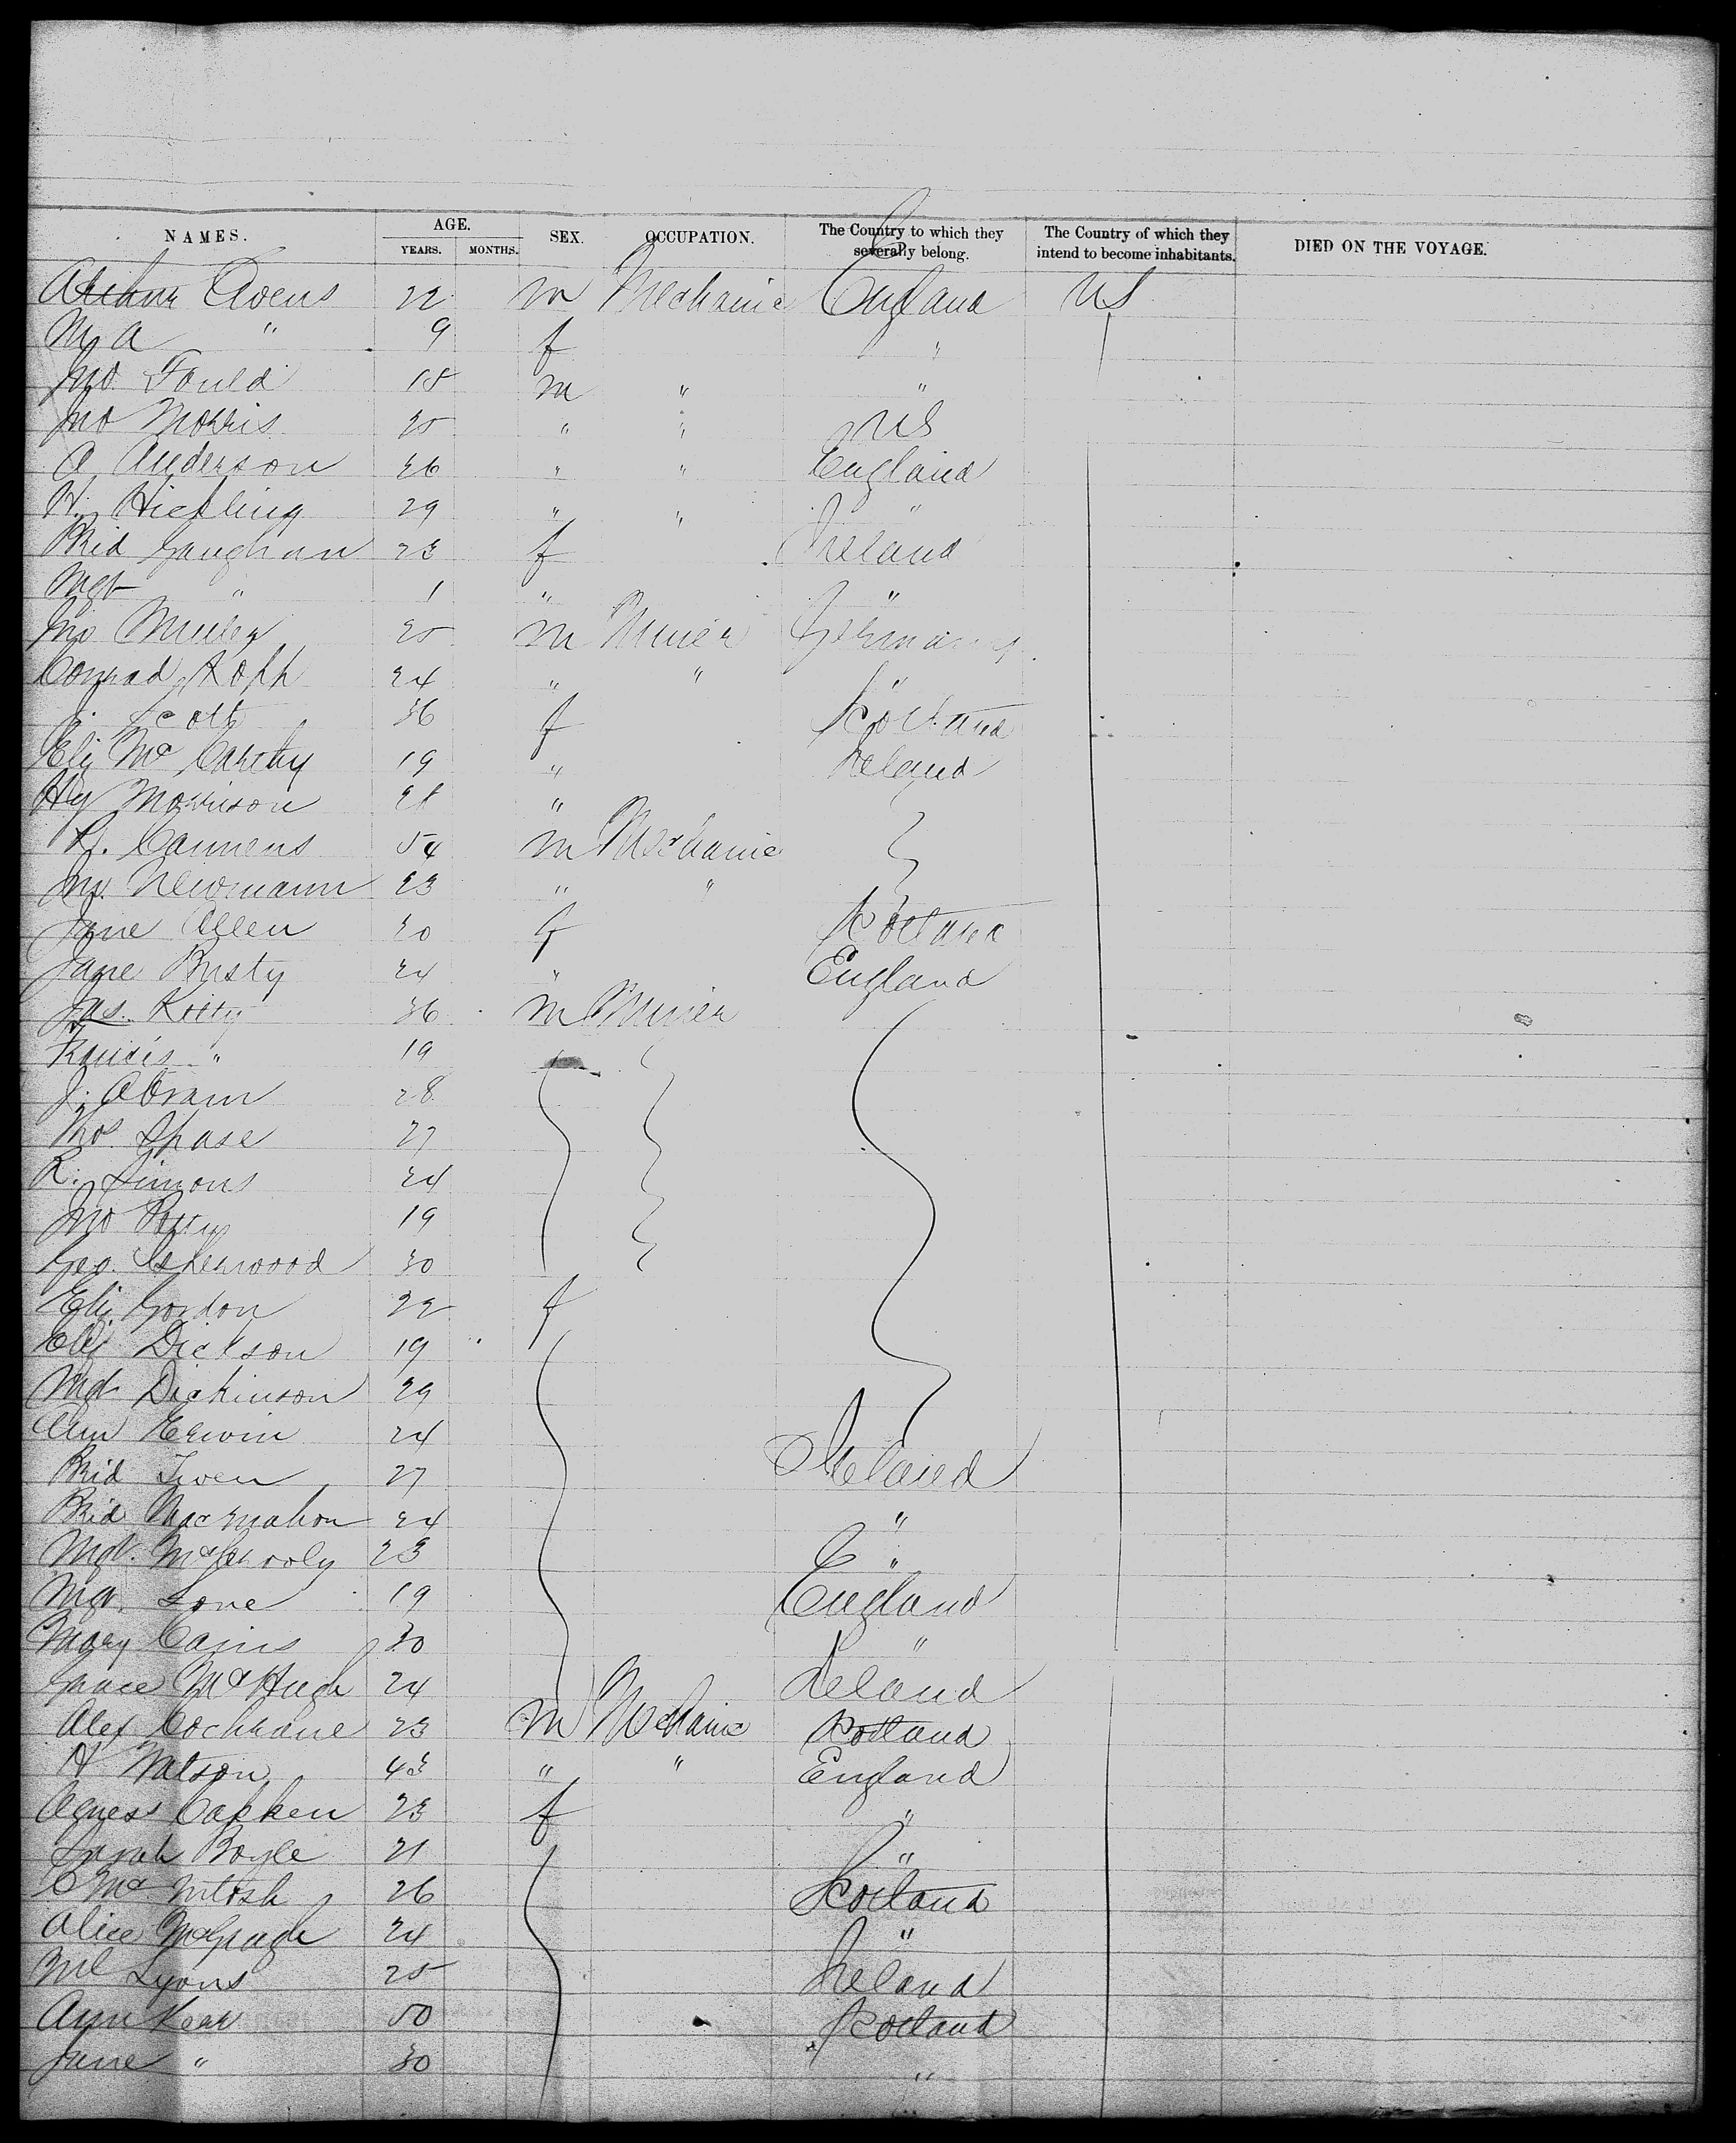 NAMES. AGE. YEARS. MONTHS. SEX. OCCUPATION. The Country to which they severally belong. The Country of which they intend to become inhabitants. DIED ON THE VOYAGE.
Arthur Owens 22 m Mechanic England US
M. A " 9 f "
Jno. Fould 18 m " "
Jno Morris 25 " " US
A. Anderson 26 " " England
H. Hickling 29 " " "
Brid Gaughran 23 f Ireland
Mgt " 1 " "
Jno 25 m Miner Germany
Conrad Roph 24 " " "
J. Scott 36 f Scotland
Eliz McCarthy 19 " Ireland
Hy Morrison "
54 m Mechanic
Jno. Newmann 23 " "
Jane Allen 30 f Scotland
Jane Busty 24 " England
Jas. Kitty 36 m Miner
Francis " 19
J. Abram 28
Thos. Shase 27
R. Simons 24
Jno 19
Geo. Isherwood 30
Eliz Gordon 22 f
Eliz Dickson 19
Mgt Dickinson 29
Ann Erwin 24
Brid 27 Ireland
Brid MacMahon 24 "
Mgt. 23 "
Mgt. Love 19 England
Mary Cairns 30 "
Grace McHugh 24 Ireland
Alex Cochrane 23 m Mechanic Scotland
H Watson 43 " " England
Agness 23 f "
Sarah Boyle 21 "
C McIntosh 26 Scotland
Alice 24 "
Ml Lyons 25 Ireland
Ann Kerr 50 Scotland
Jane " 30 "